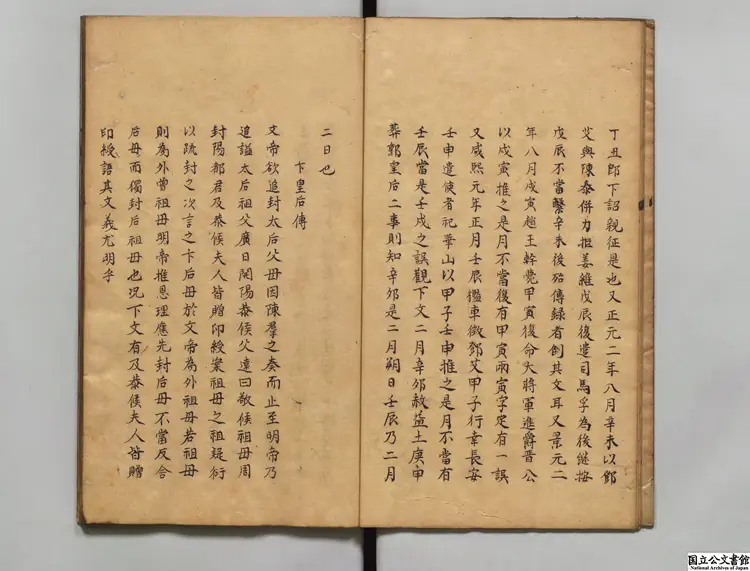 丁丑即下詔親征是也又正元二年八月辛未以鄧
艾與陳泰併力拒姜維戊辰後遣司馬孚為後继按
戊辰不當繫辛未後殆傳録者倒其文耳又景元二
年八月戊寅趙王幹薨甲寅復命大將軍進爵晋公
以戊寅推之是月不當復有甲寅兩寅字定有一誤
又咸熙元年正月壬辰檻車徵鄧艾甲子行幸長安
壬申遣使者祀華山以甲子壬申推之是月不當有
壬辰當是壬戌之誤觀下文二月辛夘赦益土庚申
葬郭皇后二事則知辛夘是二月朔日壬辰乃二月
二日也
卞皇后傳
文帝欲追封太后父母因陳羣之奏而止至明帝乃
追謚太后祖父廣曰開陽恭侯父遠曰敬侯祖母周
封陽都君及恭侯夫人皆贈印綬案祖母之祖疑衍
以疏封之次言之卞后母於文帝為外祖母若祖母
則為外曾祖母明帝推恩理應先封后母不當反舍
后母而獨封后祖母也況下文有及恭侯夫人皆贈
印綬語其文義尤明乎
国立公文書館
National Archives of Japan